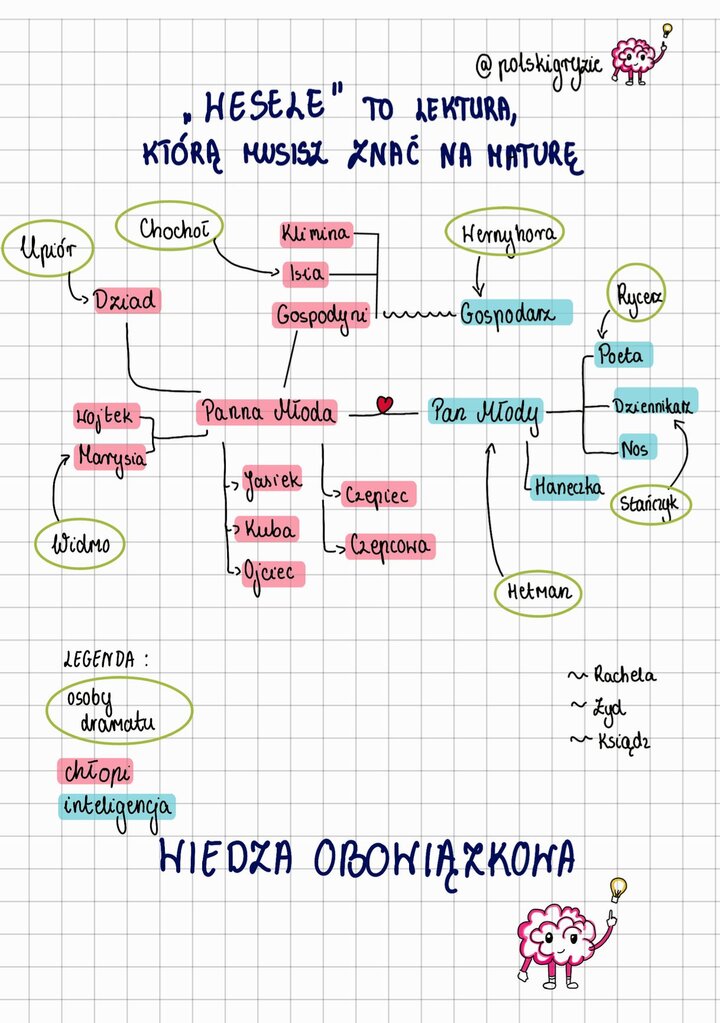 @polskigryzie
„WESELE" TO LEKTURA,
KTÓRĄ MUSISZ ZNAĆ NA MATURĘ
Upiór
Chochoł
Klimina
Isia
Gospodyni
Wernyhora
Gospodarz
Rycerz
Dziad
Poeta
Wojtek
Marysia
Panna Młoda
Pan Młody
Dziennikarz
Nos
Haneczka
Stańczyk
Jasiek
Kuba
Ojciec
Czepiec
Czepcowa
Widmo
Hetman
LEGENDA :
osoby
dramatu
chłopi
inteligencja
~ Rachela
~ Żyd
~ Ksiądz
WIEDZA OBOWIĄZKOWA